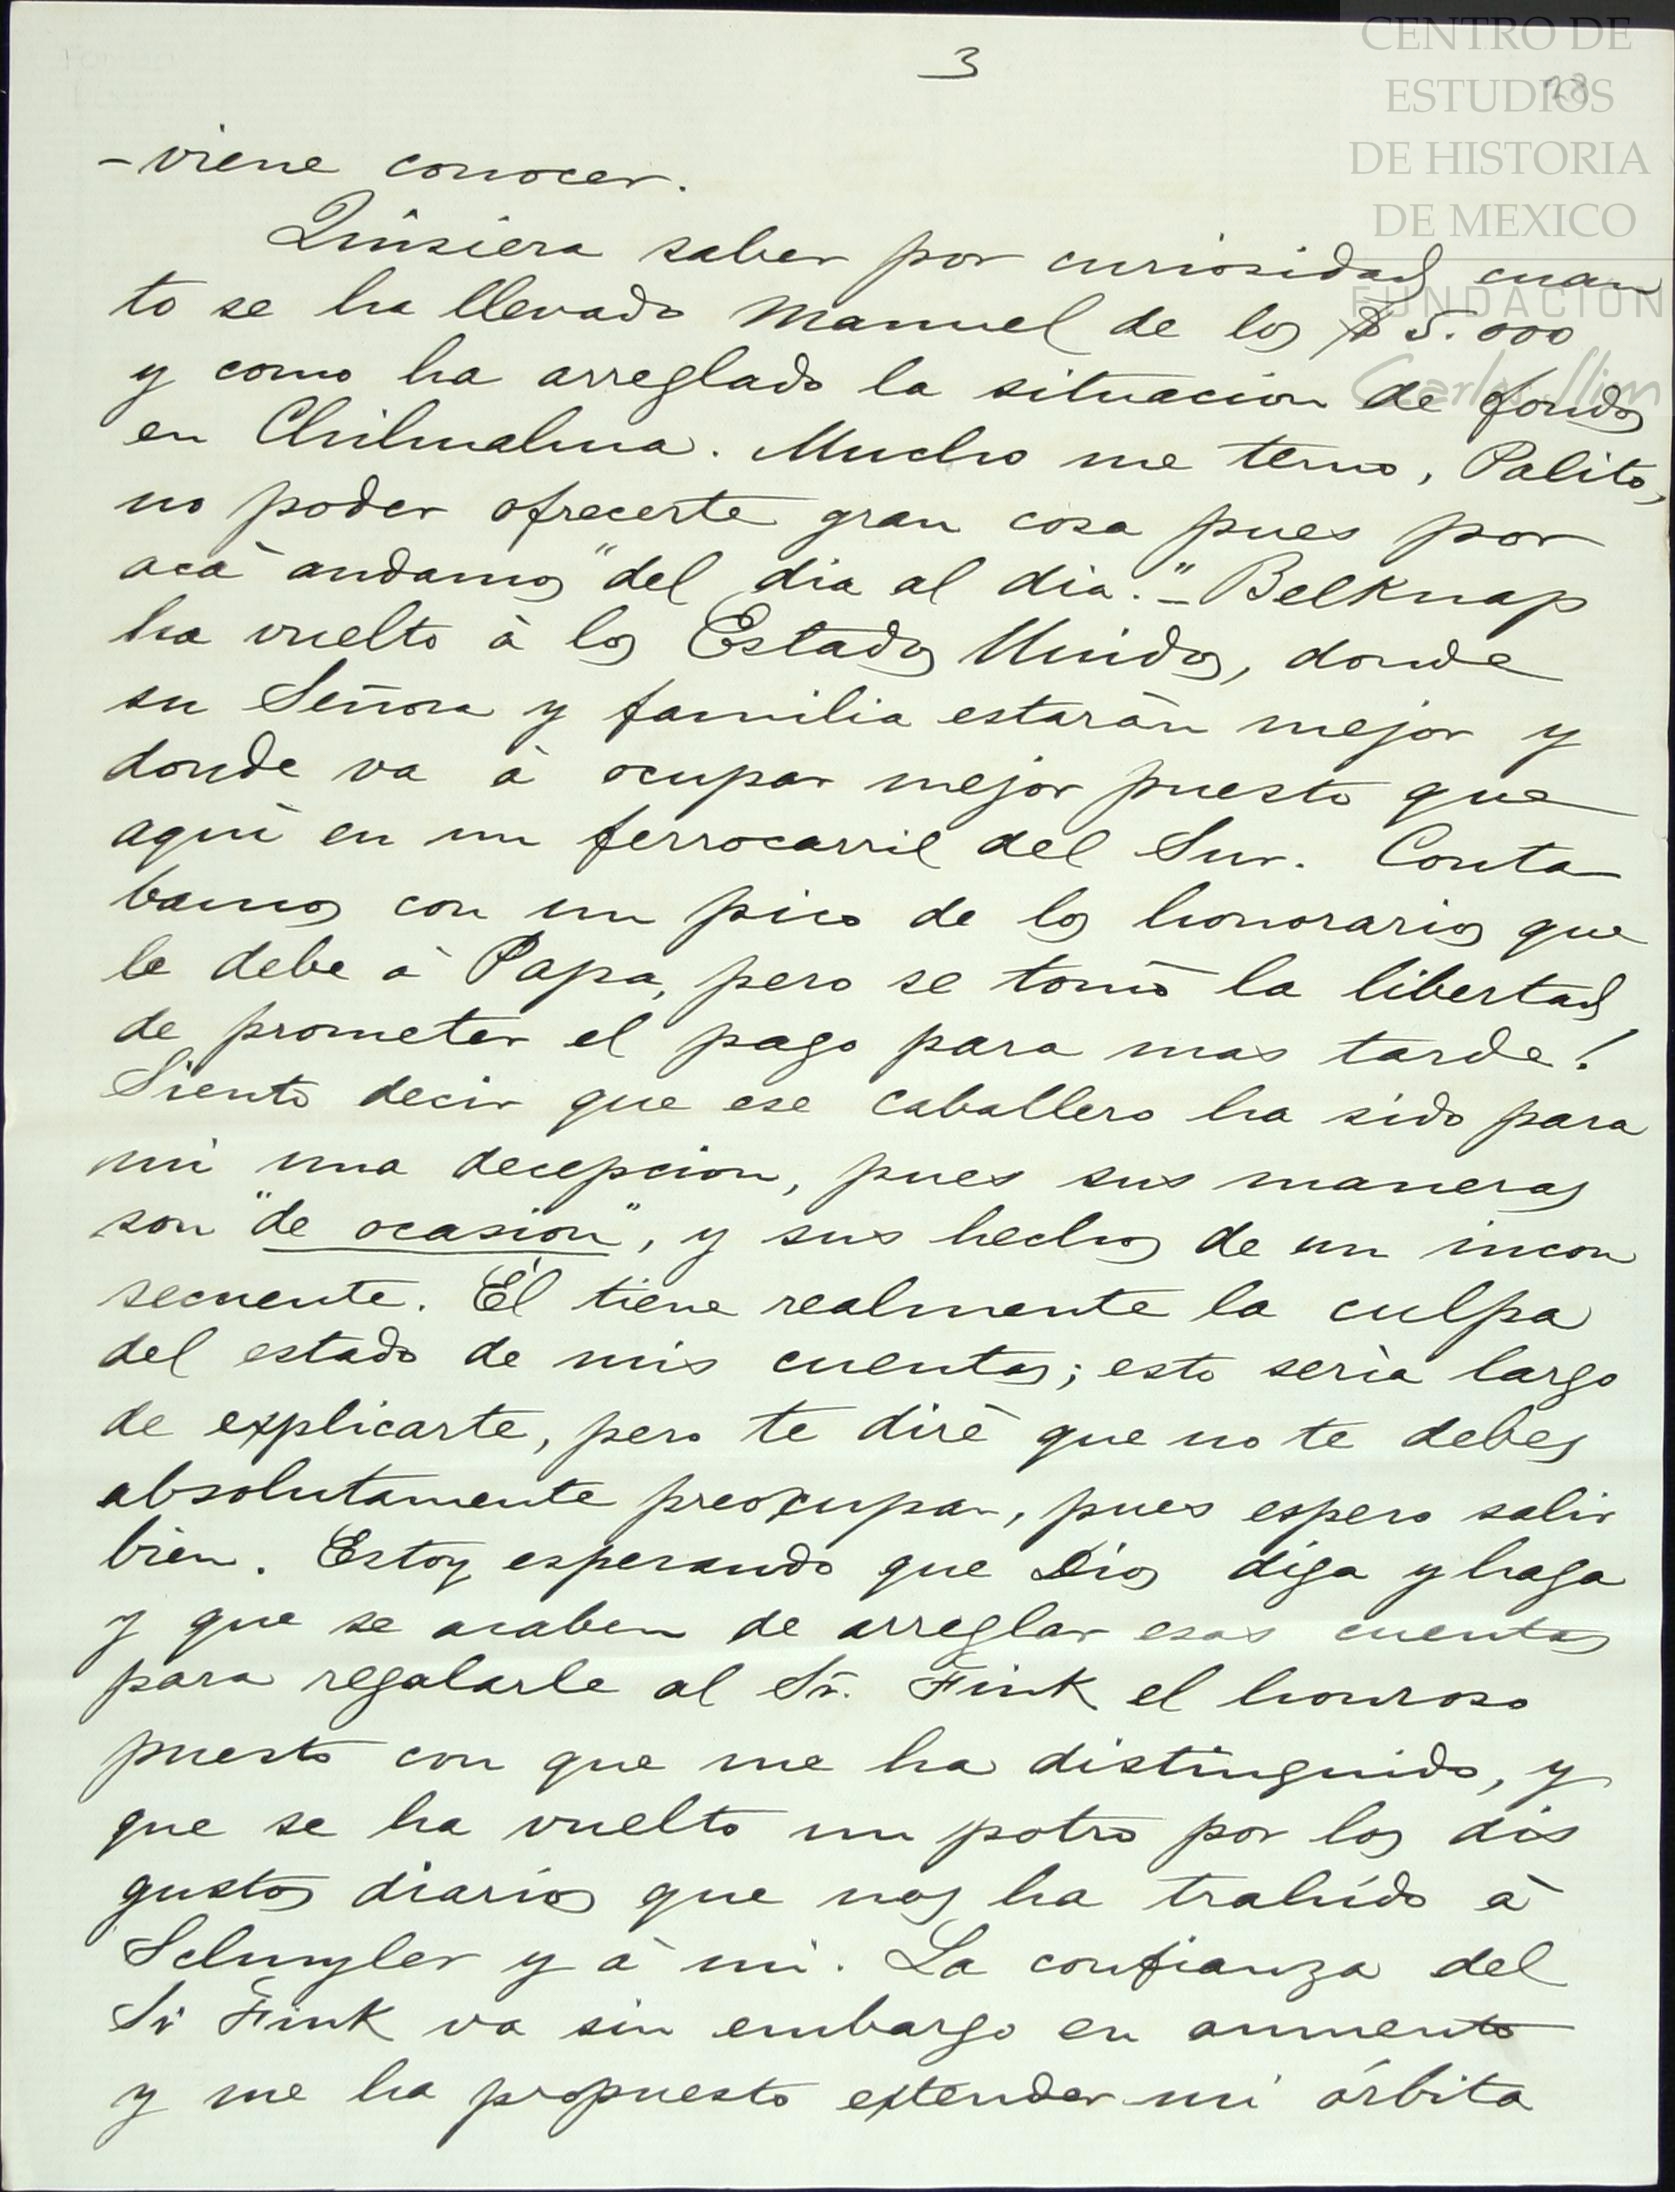 3
28
CENTRO DE
ESTUDIOS
DE HISTORIA
DE MEXICO
FUNDACION
Carlos Slim
-viene conocer.
Quisiera saber por curiosidad cuan
to se ha llevado Manuel de los $5.000
y como ha arreglado la situacion de fondos
en Chihuahua. Mucho me temo, Palito,
no poder ofrecerte gran cosa pues por
acà andamos "del dia al dia."- Belknap
ha vuelto à los Estados Unidos, donde
su Señora y familia estaràn mejor y
donde va à ocupar mejor puesto que
aquì en un ferrocarril del Sur. Conta
bamos con un pico de los honorarios que
le debe à Papa, pero se tomò la libertad
de prometer el pago para mas tarde!
Siento decir que ese caballero ha sido para
mi una decepcion, pues sus maneras
son "de ocasion", y sus hechos de un incon
secuente. Él tiene realmente la culpa
del estado de mis cuentas; esto serìa largo
de explicarte, pero te dirè que no te debes
absolutamente preocupar, pues espero salir
bien. Estoy esperando que Dios diga y haga
y que se acaben de arreglar esas cuentas
para regalarle al Sr. Fink el honroso
puesto con que me ha distinguido, y
que se ha vuelto un potro por los dis
gustos diarios que nos ha trahido à
Schuyler y à mi. La confianza del
Sr Fink va sin embargo en aumento
y me ha propuesto extender mi órbita